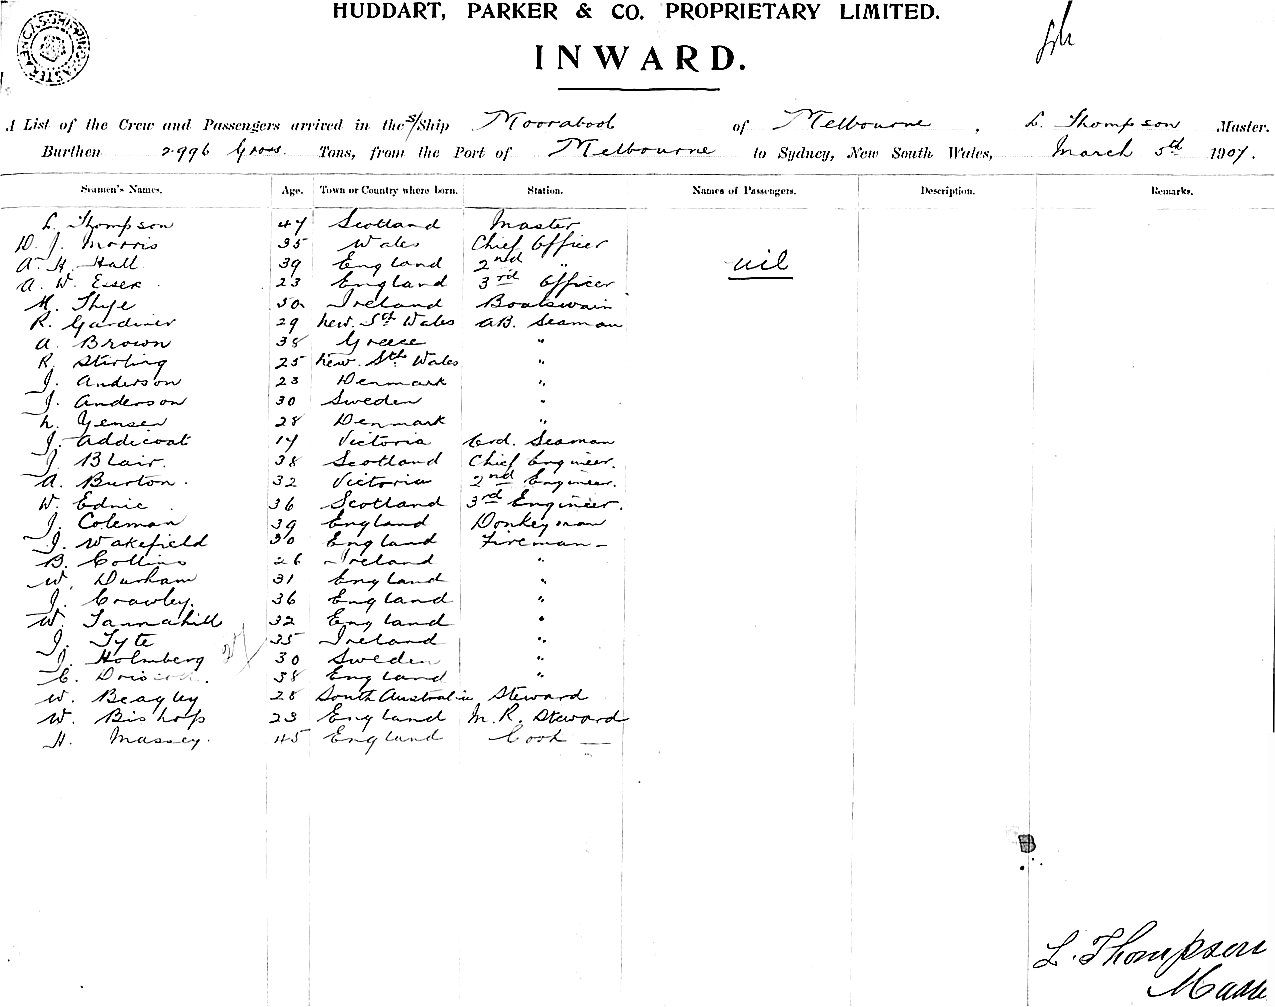 HUDDART, PARKER & CO. PROPRIETARY LIMITED.
INWARD.
A List of the Crew and Passengers arrived in the S/Ship Moorabool of Melbourne, L. Thompson Master.
Burthen 2996 Gross. Tons, from the Port of Melbourne to Sydney, New South Wales, March 5th 1907.
Seamen's Names. Age. Town or Country where born. Station. Names of Passengers. Description. Remarks.
L. Thompson 47 Scotland Master
D. J. Morris 35 Wales Chief Officer
A. H. Hall 39 England 2nd "
nil
A. W. Essex 23 England 3rd Officer
M. 30 Ireland Boatswain
R. Gardiner 29 New. Sth Wales AB. Seaman
A. Brown 38 Greece "
R. Stirling 25 New. Sth Wales "
J. Anderson 23 Denmark "
J. Anderson 30 Sweden "
L. Yensen 28 Denmark "
J. Addicoat 17 Victoria Ord. Seaman
J. Blair. 38 Scotland Chief Engineer.
A. Burton. 32 Victoria 2nd Engineer.
W. Ednie 36 Scotland 3rd Engineer.
J. Coleman 39 England Donkeyman
J. Wakefield 30 England Fireman
B. Collins 26 Ireland "
W. Durham 31 England "
J. Crawley. 36 England "
W. Tannahill 32 England "
J. Tyte 35 Ireland "
J. Holmberg 30 Sweden "
C. Driscoll. 38 England "
W. Beagley 28 South Australia Steward
W. Bishop 23 England M. R. Steward
H. Massey. 45 England Cook
L. Thompson